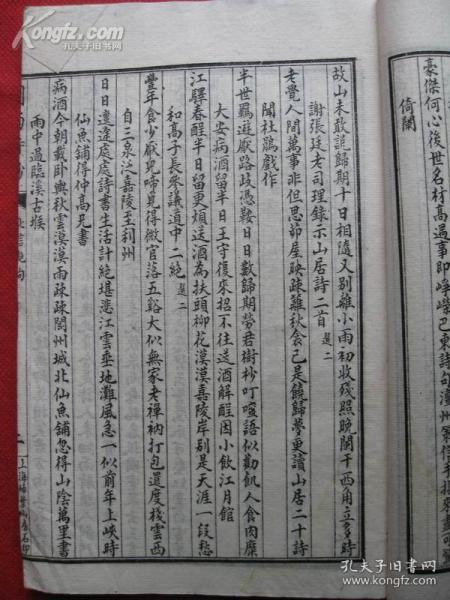 豪傑何心後世名材高遇事即崢嶸巴東詩句澶州策信手拈來盡可驚
倚闌
故山未敢說歸期十日相隨又別離小雨初收殘照晚闌干西角立多時
謝張廷老司理錄示山居詩二首 選二
老覺人間萬事非但思茆屋映疎籬秋食已是饒歸夢更讀山居二十詩
聞杜鵑戲作
半世羈遊厭路歧憑鞍日日數歸期勞君樹杪叮嚀語似勸飢人食肉糜
大安病酒留半日王守復來招不往送酒解酲因小飲江月館
江驛春酲半日留更煩送酒為扶頭柳花漠漠嘉陵岸別是天涯一段愁
和高子長參議道中二絕 選二
豐年食少厭兒啼覓得微官落五谿大似無家老禪衲打包還度棧雲西
自三泉泛嘉陵至利州
日日處處詩書生活計絕堪悲江雲垂地灘風急一似前年上峽時
仙魚鋪得仲高兄書
病酒今朝載臥輿秋雲漠漠雨疎疎閬州城北仙魚鋪忽得山陰萬里書
雨中過臨溪古堠
二
上海 石印
孔夫子旧书网
孔夫子旧书网